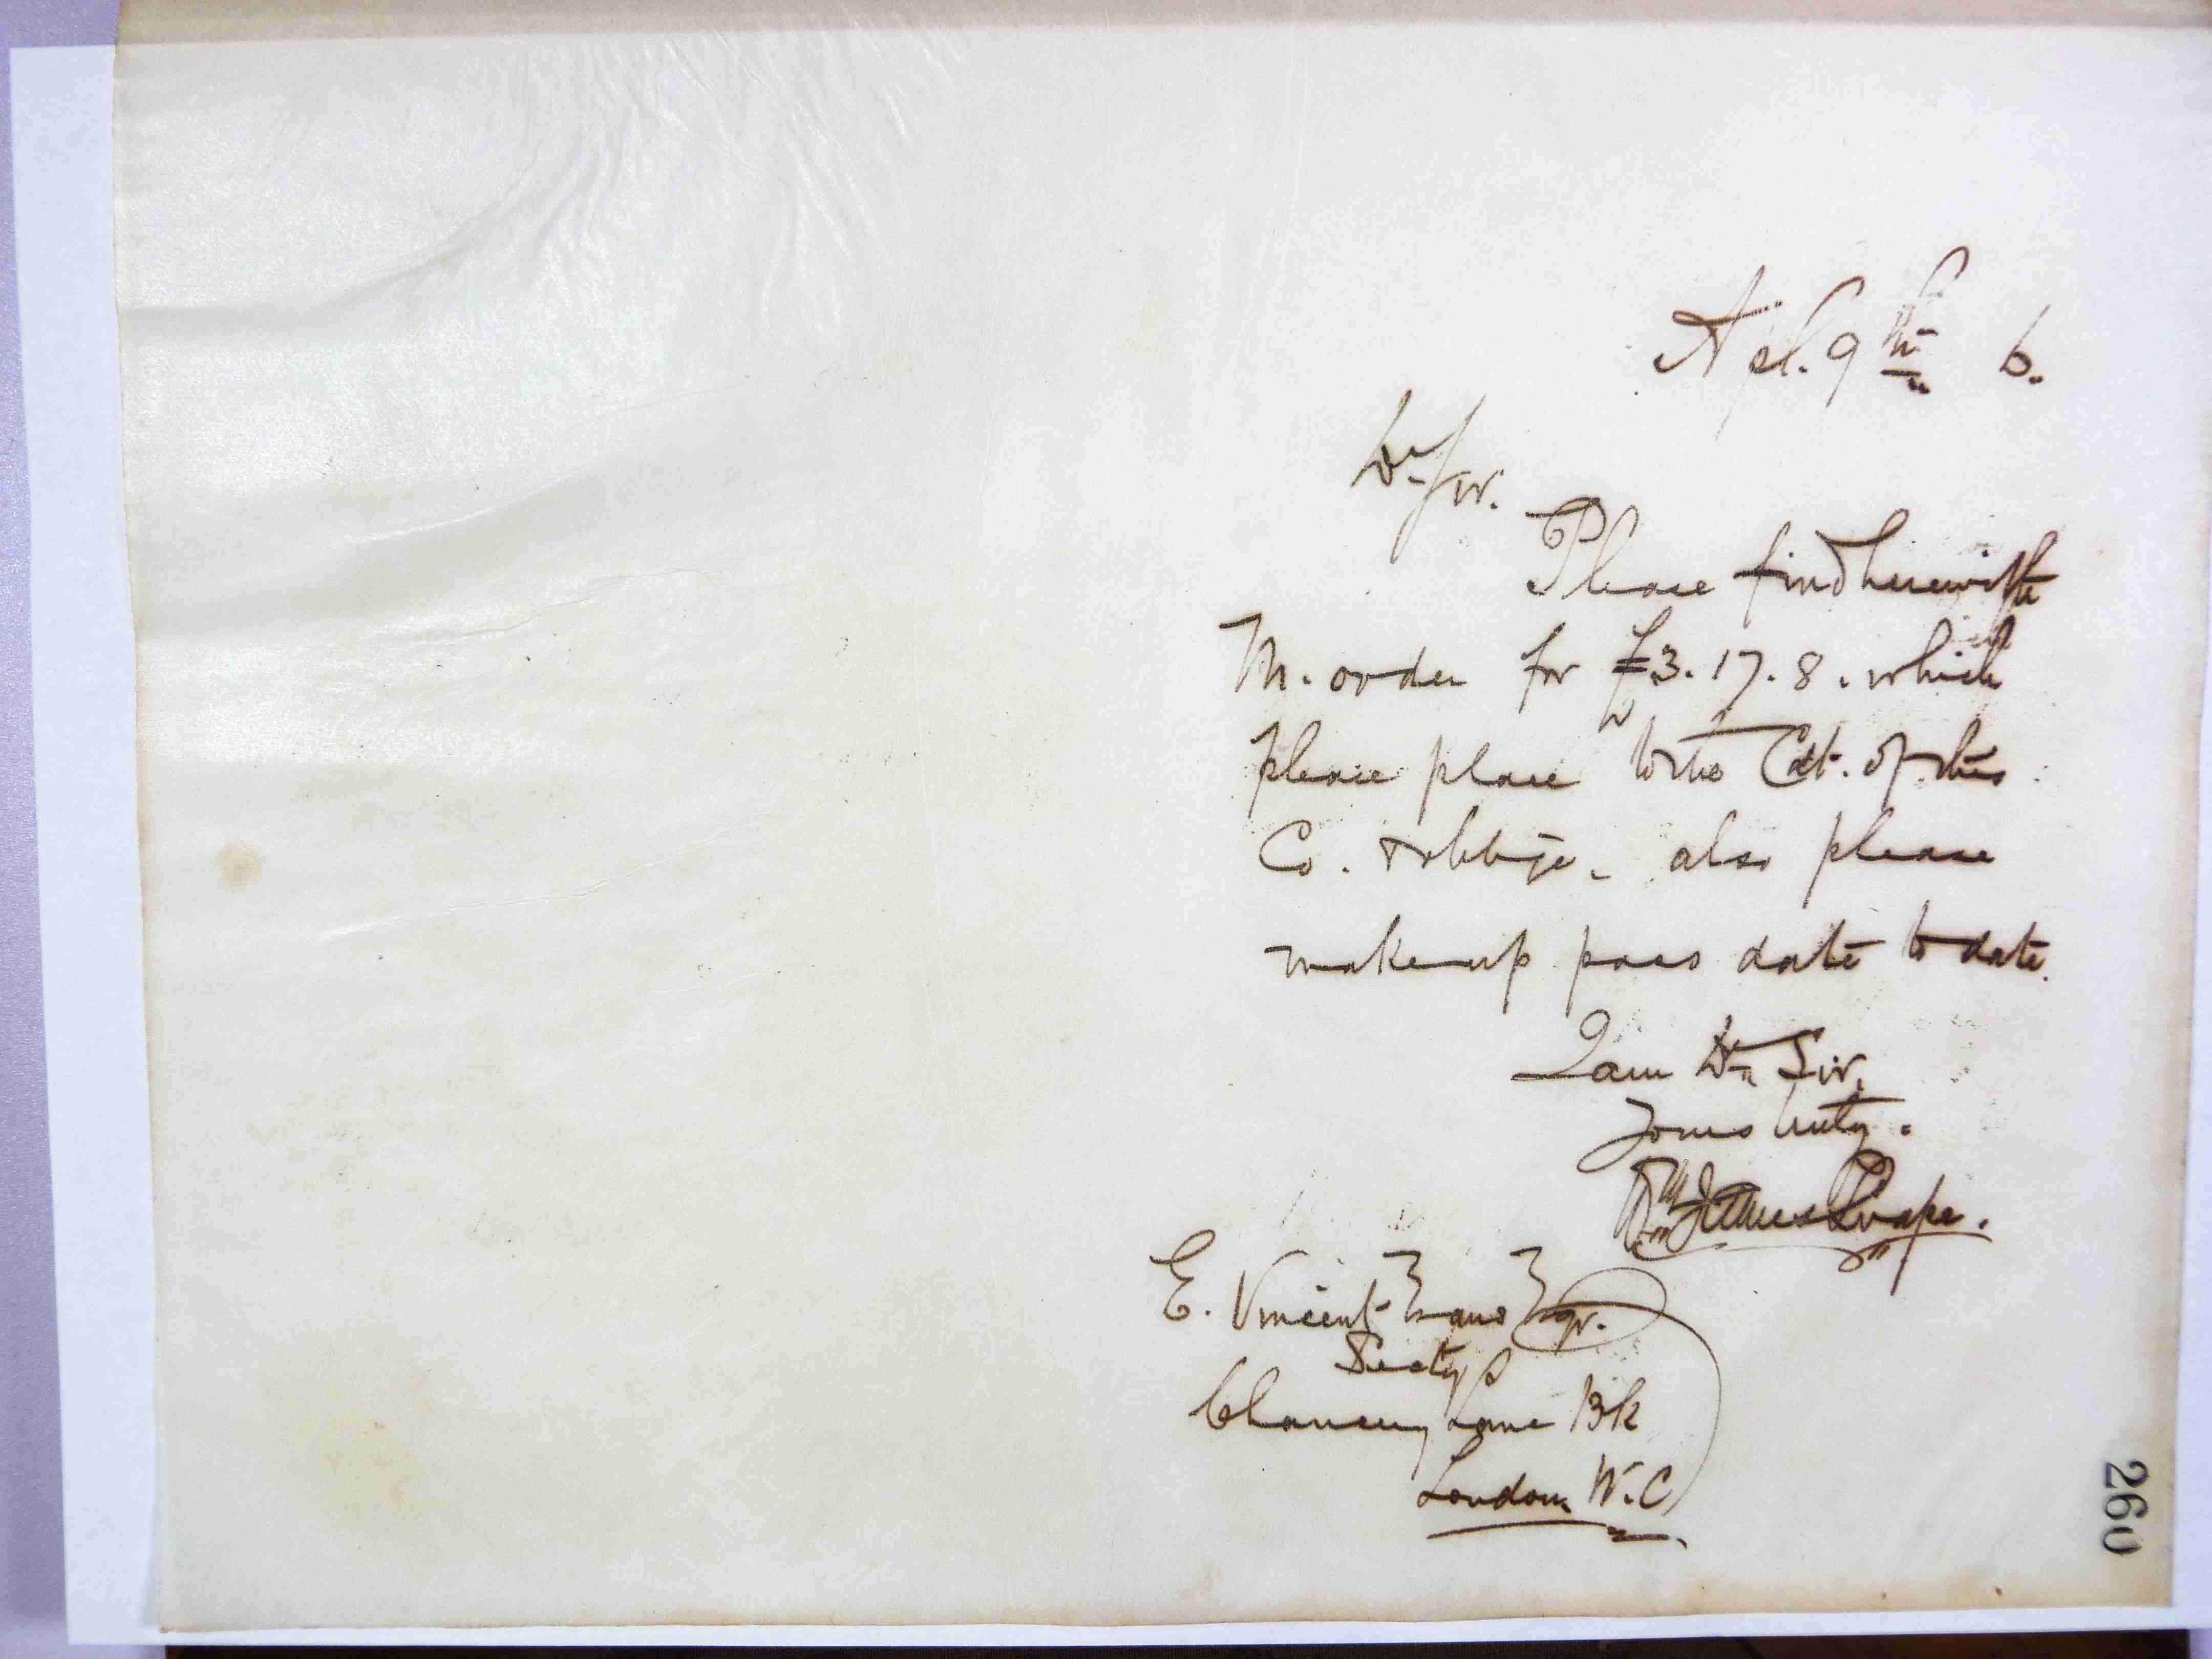 Apl. 9th 6.
Dr Sir.
Please find herewith
M. order for £3.17.8. which
please place to the Cdt. of this
Co. & oblige. also please
make up pass date to date.
I am Dr Sir,
Yours truly.
Wm James
E. Vincent Evans Esqr.
Secty
Chancery Lane Bk
London W.C.
260